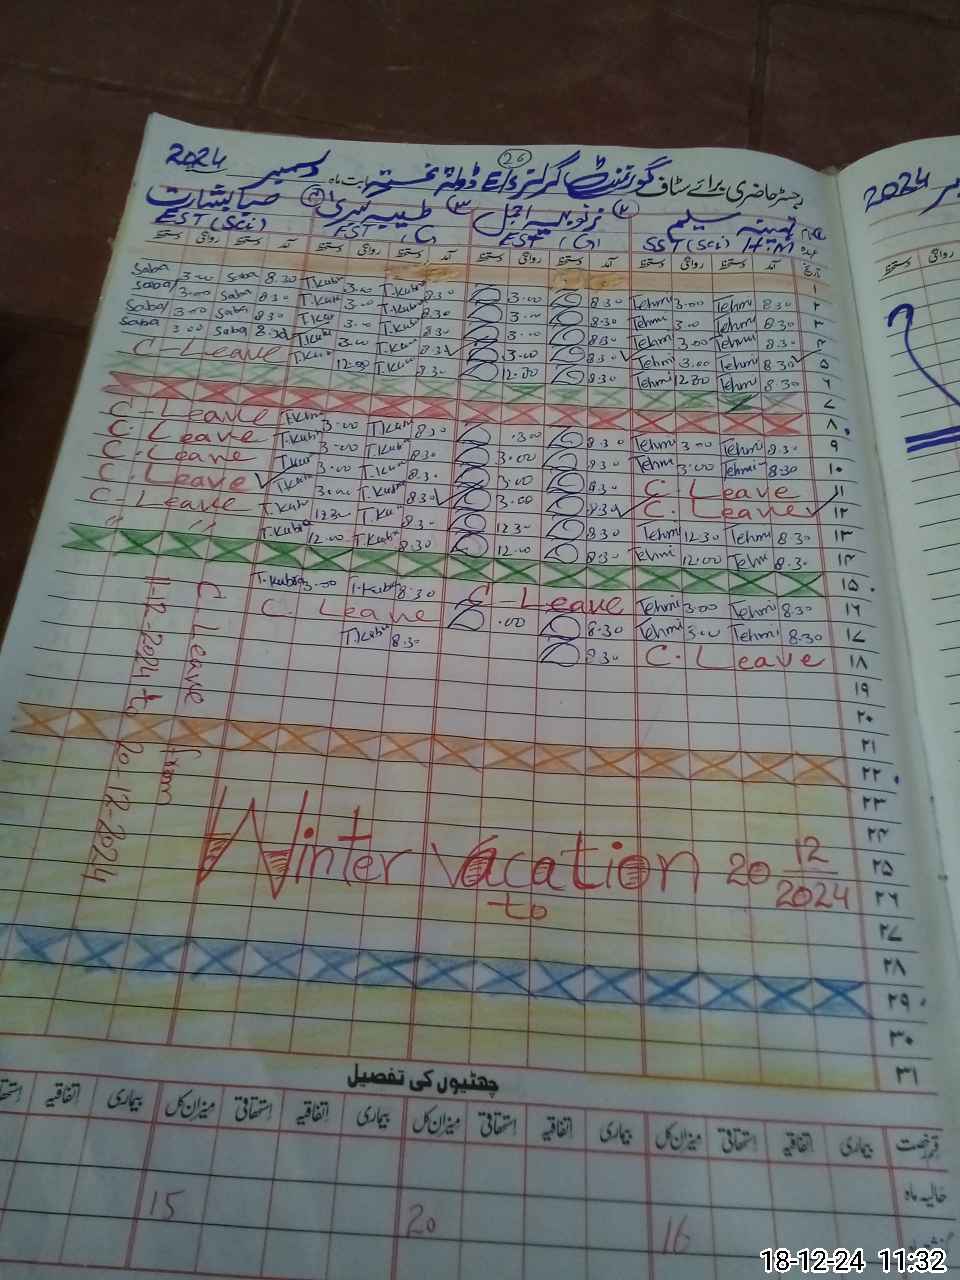 26
رجسٹر حاضری برائے سٹاف گورنمنٹ گرلز بابت ماہ دسمبر 2024
تہمینہ سلیم
طیبہ کبریٰ
صبا بشارت
SST (Sci) H.M
EST (G)
EST (C)
EST (Sci)
آمد دستخط روانگی دستخط
تاریخ
۱
۲ 8.30 Tehmi 3.00 Tehmi 8.30 3.00 8.30 T.Kubra 3.00 T.Kubra 8.30 Saba 3.00 Saba
۳ 8.30 Tehmi 3.00 Tehmi 8.30 3.00 8.30 T.Kubra 3.00 T.Kubra 8.30 Saba 3.00 Saba
۴ 8.30 Tehmi 3.00 Tehmi 8.30 3.00 8.30 T.Kubra 3.00 T.Kub 8.30 Saba 3.00 Saba
۵ 8.30 Tehmi 3.00 Tehmi 8.30 3.00 8.30 T.Kubra 3.00 T.Kub 8.30 Saba 3.00 Saba
۶ 8.30 Tehmi 12.30 Tehmi 8.30 12.00 8.30 T.Kub 12.00 T.Kub C-Leave
۷
۸
۹ 8.30 Tehmi 3.00 Tehmi 8.30 3.00 8.30 T.Kub 3.00 T.Kub C-Leave
۱۰ 8.30 Tehmi 3.00 Tehmi 8.30 3.00 8.30 T.Kub 3.00 T.Kub C. Leave
۱۱ C. Leave 8.30 3.00 8.30 T.Kub 3.00 T.Kub C. Leave
۱۲ C. Leave 8.30 3.00 8.30 T.Kubra 3.00 T.Kub C. Leave
۱۳ 8.30 Tehmi 12.30 Tehmi 8.30 12.30 8.30 T.Kub 12.30 T.Kub C-Leave
۱۴ 8.30 Tehmi 12.00 Tehmi 8.30 12.00 8.30 T.Kubra 12.00 T.Kubra " "
۱۵
۱۶ 8.30 Tehmi 3.00 Tehmi C Leave 8.30 T.Kubra 3.00 T.Kubra
۱۷ 8.30 Tehmi 3.00 Tehmi 8.30 .00 C. Leave
۱۸ C. Leave 8.30 8.30 T.Kubra
۱۹
۲۰
۲۱
۲۲
۲۳
۲۴
۲۵
۲۶
۲۷
۲۸
۲۹
۳۰
۳۱
C Leave from
11-12-2024 to 20-12-2024
Winter Vacation 20 12/2024
to
چھٹیوں کی تفصیل
قسم رخصت بیماری اتفاقیہ استحقاقی میزان کل بیماری اتفاقیہ استحقاقی میزان کل بیماری اتفاقیہ استحقاقی میزان کل بیماری اتفاقیہ
حالیہ ماہ
16 20 15
2024
دستخط روانگی
18-12-24 11:32